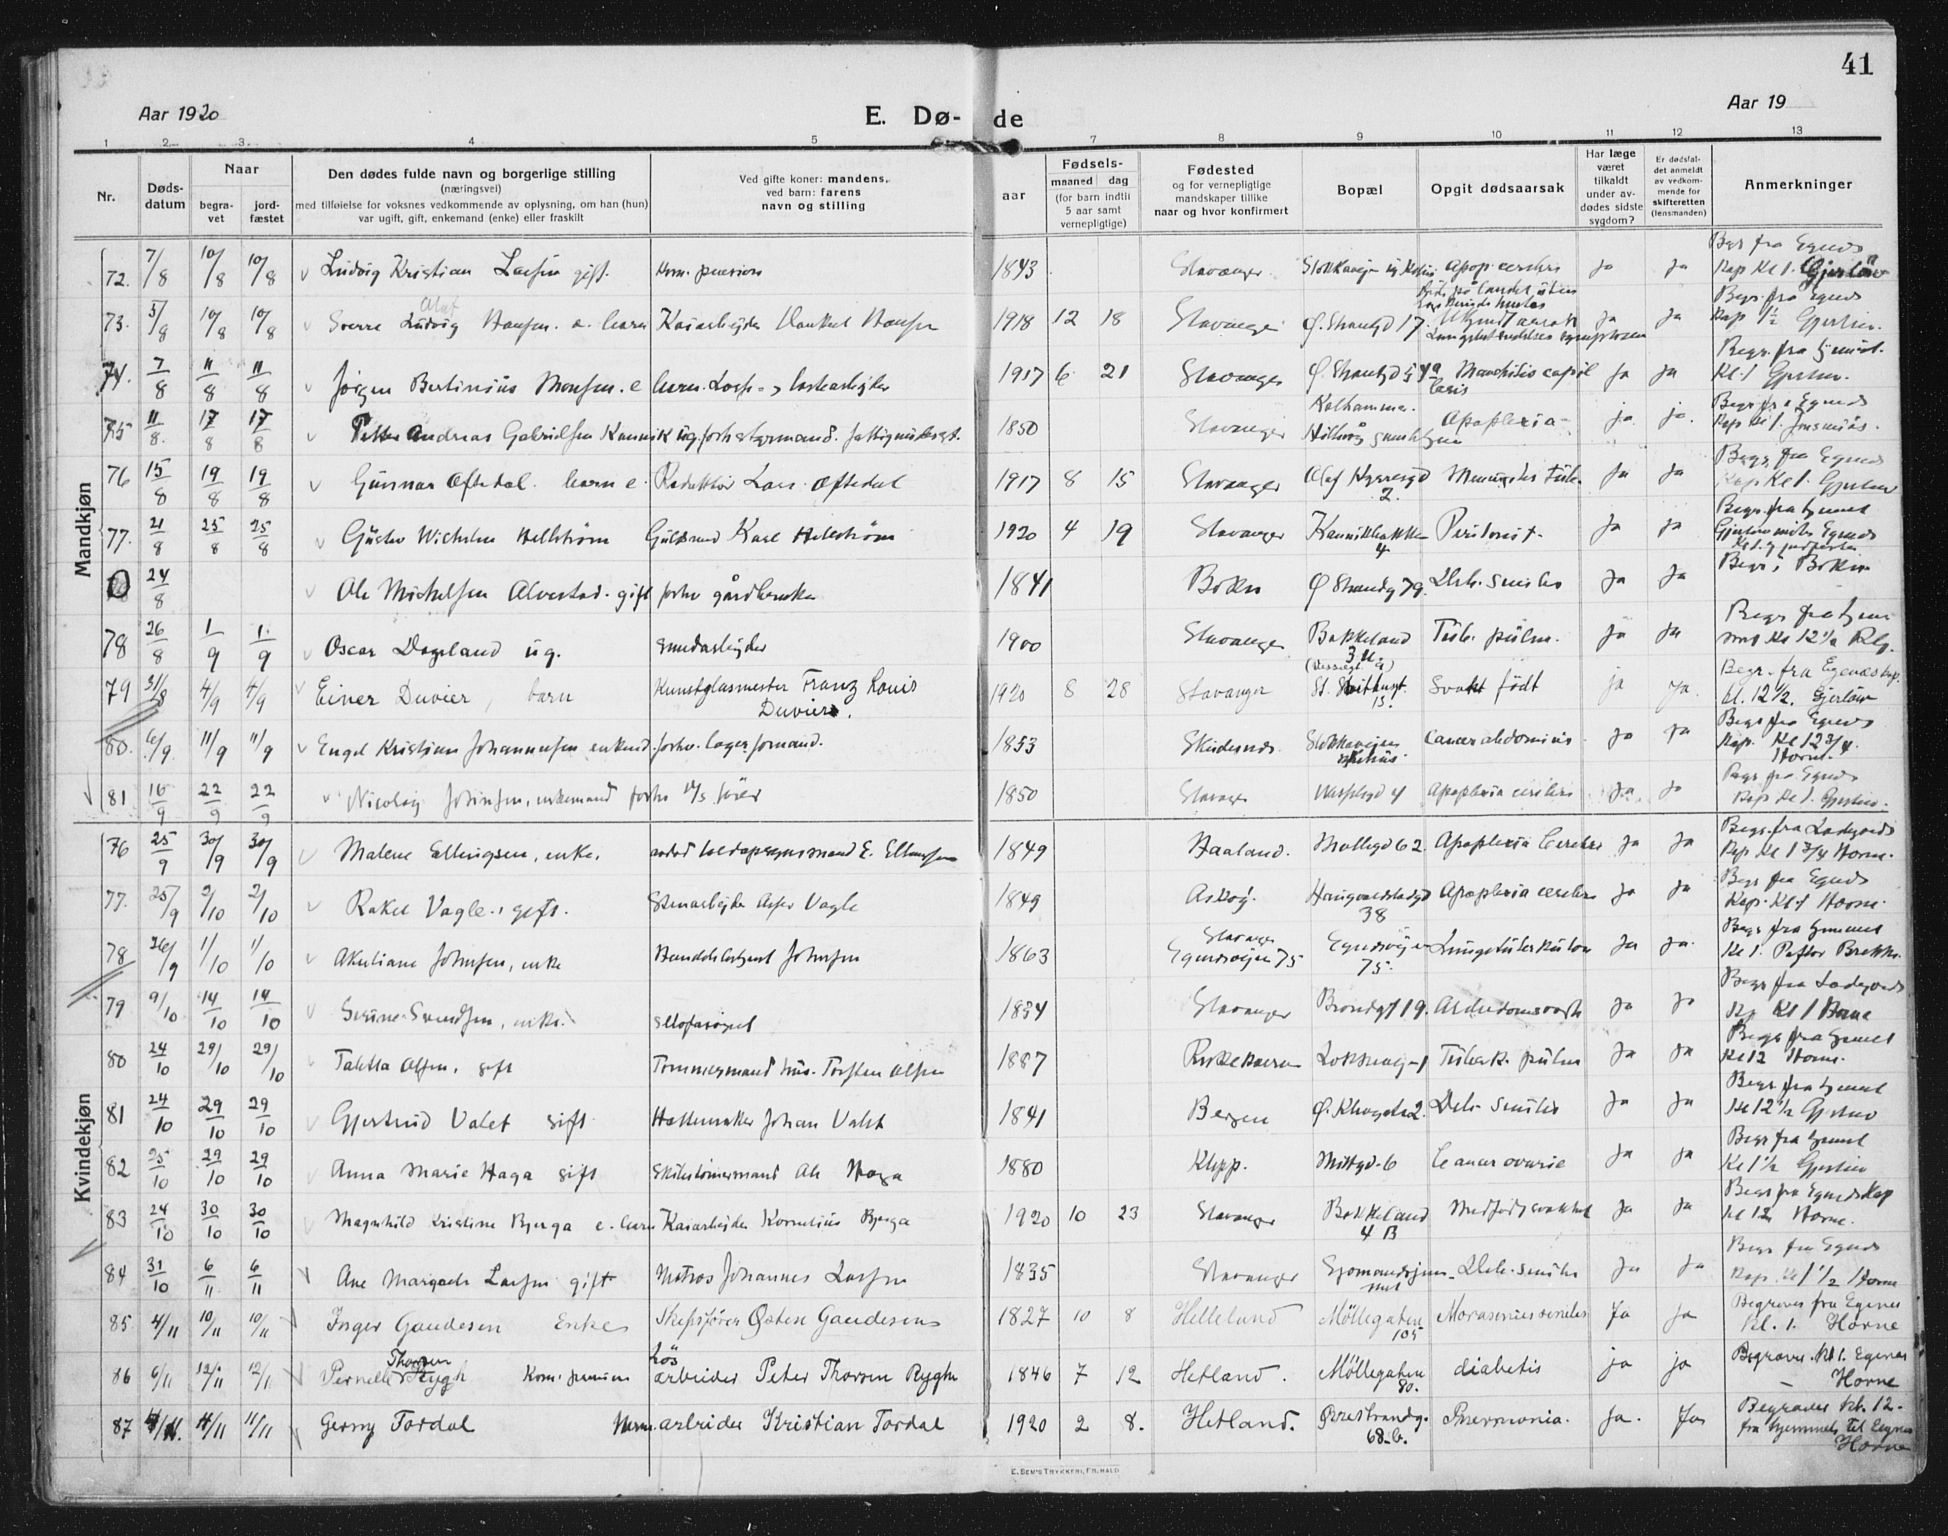 41
Aar 1920
E. Dø-
de
Aar 19
1 2 3. 4 5 7 8 9 10 11 12 13
Nr.
Døds-
datum
Naar
begra-
vet
jord-
fæstet
Den dødes fulde navn og borgerlige stilling
(næringsvei)
med tilføielse for voksnes vedkommende av oplysning, om han (hun)
var ugift, gift, enkemand (enke) eller fraskilt
Ved gifte koner: mandens,
ved barn: farens
navn og stilling
aar
Fødsels-
maaned dag
(for barn indtil
5 aar samt
vernepligtige)
Fødested
og for vernepligtige
mandskaper tillike
naar og hvor konfirmert
Bopæl
Opgit dødsaarsak
Har læge
været
tilkaldt
under av-
dødes sidste
sygdom?
Er dødsfal-
det anmeldt
av vedkom-
mende for
skifteretten
(lensmanden)
Anmerkninger
Mandkjøn
72. 7/8 10/8 10/8 Ludvig Kristian Larsen gift. kom. pension 1843 Stavanger ja ja Begr fra Egenes Kap Kl 1. Gjerløw
73. 5/8 10/8 10/8 Sverre Olaf Ludvig Hansen e. barn Kaiarbejder Hansen 1918 12 18 Stavanger Ø. Strandgd 17. ja ja Begr. fra Egenes Kap 1½ Gjerløw.
74. 7/8 11/8 11/8 Jørgen Bertinius Monsen. e barn. 1917 6 21 Stavanger Ø. Strandgd ja ja Begr. fra hjemmet. Kl 1 Gjerløw.
75 11/8. 17/8 17/8 Petter Andreas Gabrielsen Kannik ug. forh styrmand. 1850 Stavanger Apoplexia ja ja. Begr fra Egenes Kap Kl 1.
76 15/8 19/8 19/8 Gunnar Oftedal. barn e. Redaktør Lars Oftedal 1917 8 15 Stavanger Olaf Kyrresgd 2. ja ja Begr. fra Egenes Kap Kl 1. Gjerløw
77. 21/8 25/8 25/8 Gustav Wilhelm Hellstrøm Guldsmed Karl Hellstrøm 1920 4 19 Stavanger Kannikbakken 4 Peritonit. ja ja Begr. fra hjemmet Gjerløw Egenes
0 24/8 Ole Michelsen Alvestad. gift forhv gårdbruker 1841 Bokn Ø Strandg 79. Deb. senilis ja ja Begr i Bokn
78 26/8 1/9 1/9 Oscar Dagsland ug. smedarbejder 1900 Stavanger Bakkeland 3 Tub. pulm. ja ja Begr. fra hjemmet Kl 12½
79 31/8 4/9 4/9 Einer Duvier, barn Kunstglasmester Franz Louis Duvier. 1920 8 28 Stavanger St. 15. Svakt født ja ja. Begr. fra Egenes kap. kl. 12½. Gjerløw
80. 6/9. 11/9 11/9 Engel Kristian Johannesen enkemd. forhv. lagerformand. 1853 Skudesnes Stokkaveien cancer abdominis ja ja Begr fra Egenes Kap. Kl 12¾. Horne.
81 16/9 22/9 22/9 Nicolay Johnsen, enkemand forhv 1850 Stavanger 4 Apoplexia cerebri ja. ja Begr fra Egenes Kap Kl 1. Gjerløw.
Kvindekjøn
76 25/9 30/9 30/9 Malene Ellingsen, enke. E. Ellingsen 1849 Haaland. Møllegd 62. Apoplexia Cerebri ja ja Begr. fra Ladegaards Kap Kl 1¾ Horne.
77. 25/9 2/10 2/10 Rakel Vagle., gift. Stenarbejder Vagle 1849 Askøy. Haugvaldstadgd 38 Apoplexia cerebri ja ja Begr fra Egenes Kap. Kl 1 Horne.
78 26/9 1/10 1/10 Akeliane Johnsen, enke Johnsen 1863 Stavanger Egenesveien 75 Egenesveien 75. Lungetuberkulose ja ja. Begr fra hjemmet Kl 1. Pastor Brekke.
79 9/10 14/10 14/10 Serine Svendsen, enke. 1834 Stavanger 19. Alderdomssvakh ja ja Begr fra Ladegaards Kap Kl 1 Horne
80 24/10 29/10 29/10 Taletta Olsen. gift Tømmermand hus. Torsten Olsen 1887 Tuberk. pulm ja ja Begr fra hjemmet Kl 12 Horne.
81 24/10 29/10 29/10 Gjertrud Valet gift Hattemaker Johan Valet 1841 Bergen Deb. senilis ja ja Begr fra hjemmet Kl 12½ Gjerløw
82 25/10 29/10 29/10 Anna Marie Haga gift Skibstømmermand Ole Haga 1880 Klepp. 6 Cancer ovarie ja ja Begr fra hjemmet Kl 1½ Gjerløw
83 24/10 30/10 30/10 Magnhild Kristine Bjerga e. barn Kaiarbejder Kornelius Bjerga 1920 10 23 Stavanger Bakkeland 4 B Medfødt svakhet ja ja Begr fra Egenes Kap kl 12 Horne.
84 31/10 6/11 6/11 Ane Margrete Larsen gift Matros Johannes Larsen 1835 Stavanger Deb. senilis ja ja Begr fra Egenes Kap. Kl 1½ Horne
85. 4/11 10/11 10/11 Inger Gaudesen Enke Skipsfører Østen Gaudesens 1827 10 8 Helleland Møllegaten 105 Marasmus senilis ja ja Begraves fra Egenes kl. 1. Horne
86 6/11 12/11 12/11 Pernelle Thorsen Rygh Kom. pension Løs arbeider Peter Thorsen Rygh 1846 7 12 Hetland. Møllegaten 80. diabetis ja ja Begraves Kl 1. Egenes — Horne
87 4/11. 11/11 11/11 Gerny Tordal barn arbeider Kristian Tordal 1920 2 8. Hetland. Øvrestrandg. 68 b. Pnevmonia. ja. ja Begraves kl. 12. fra hjemmet til Egenes Horne
E. SEM'S TRYKKERI, FR.HALD